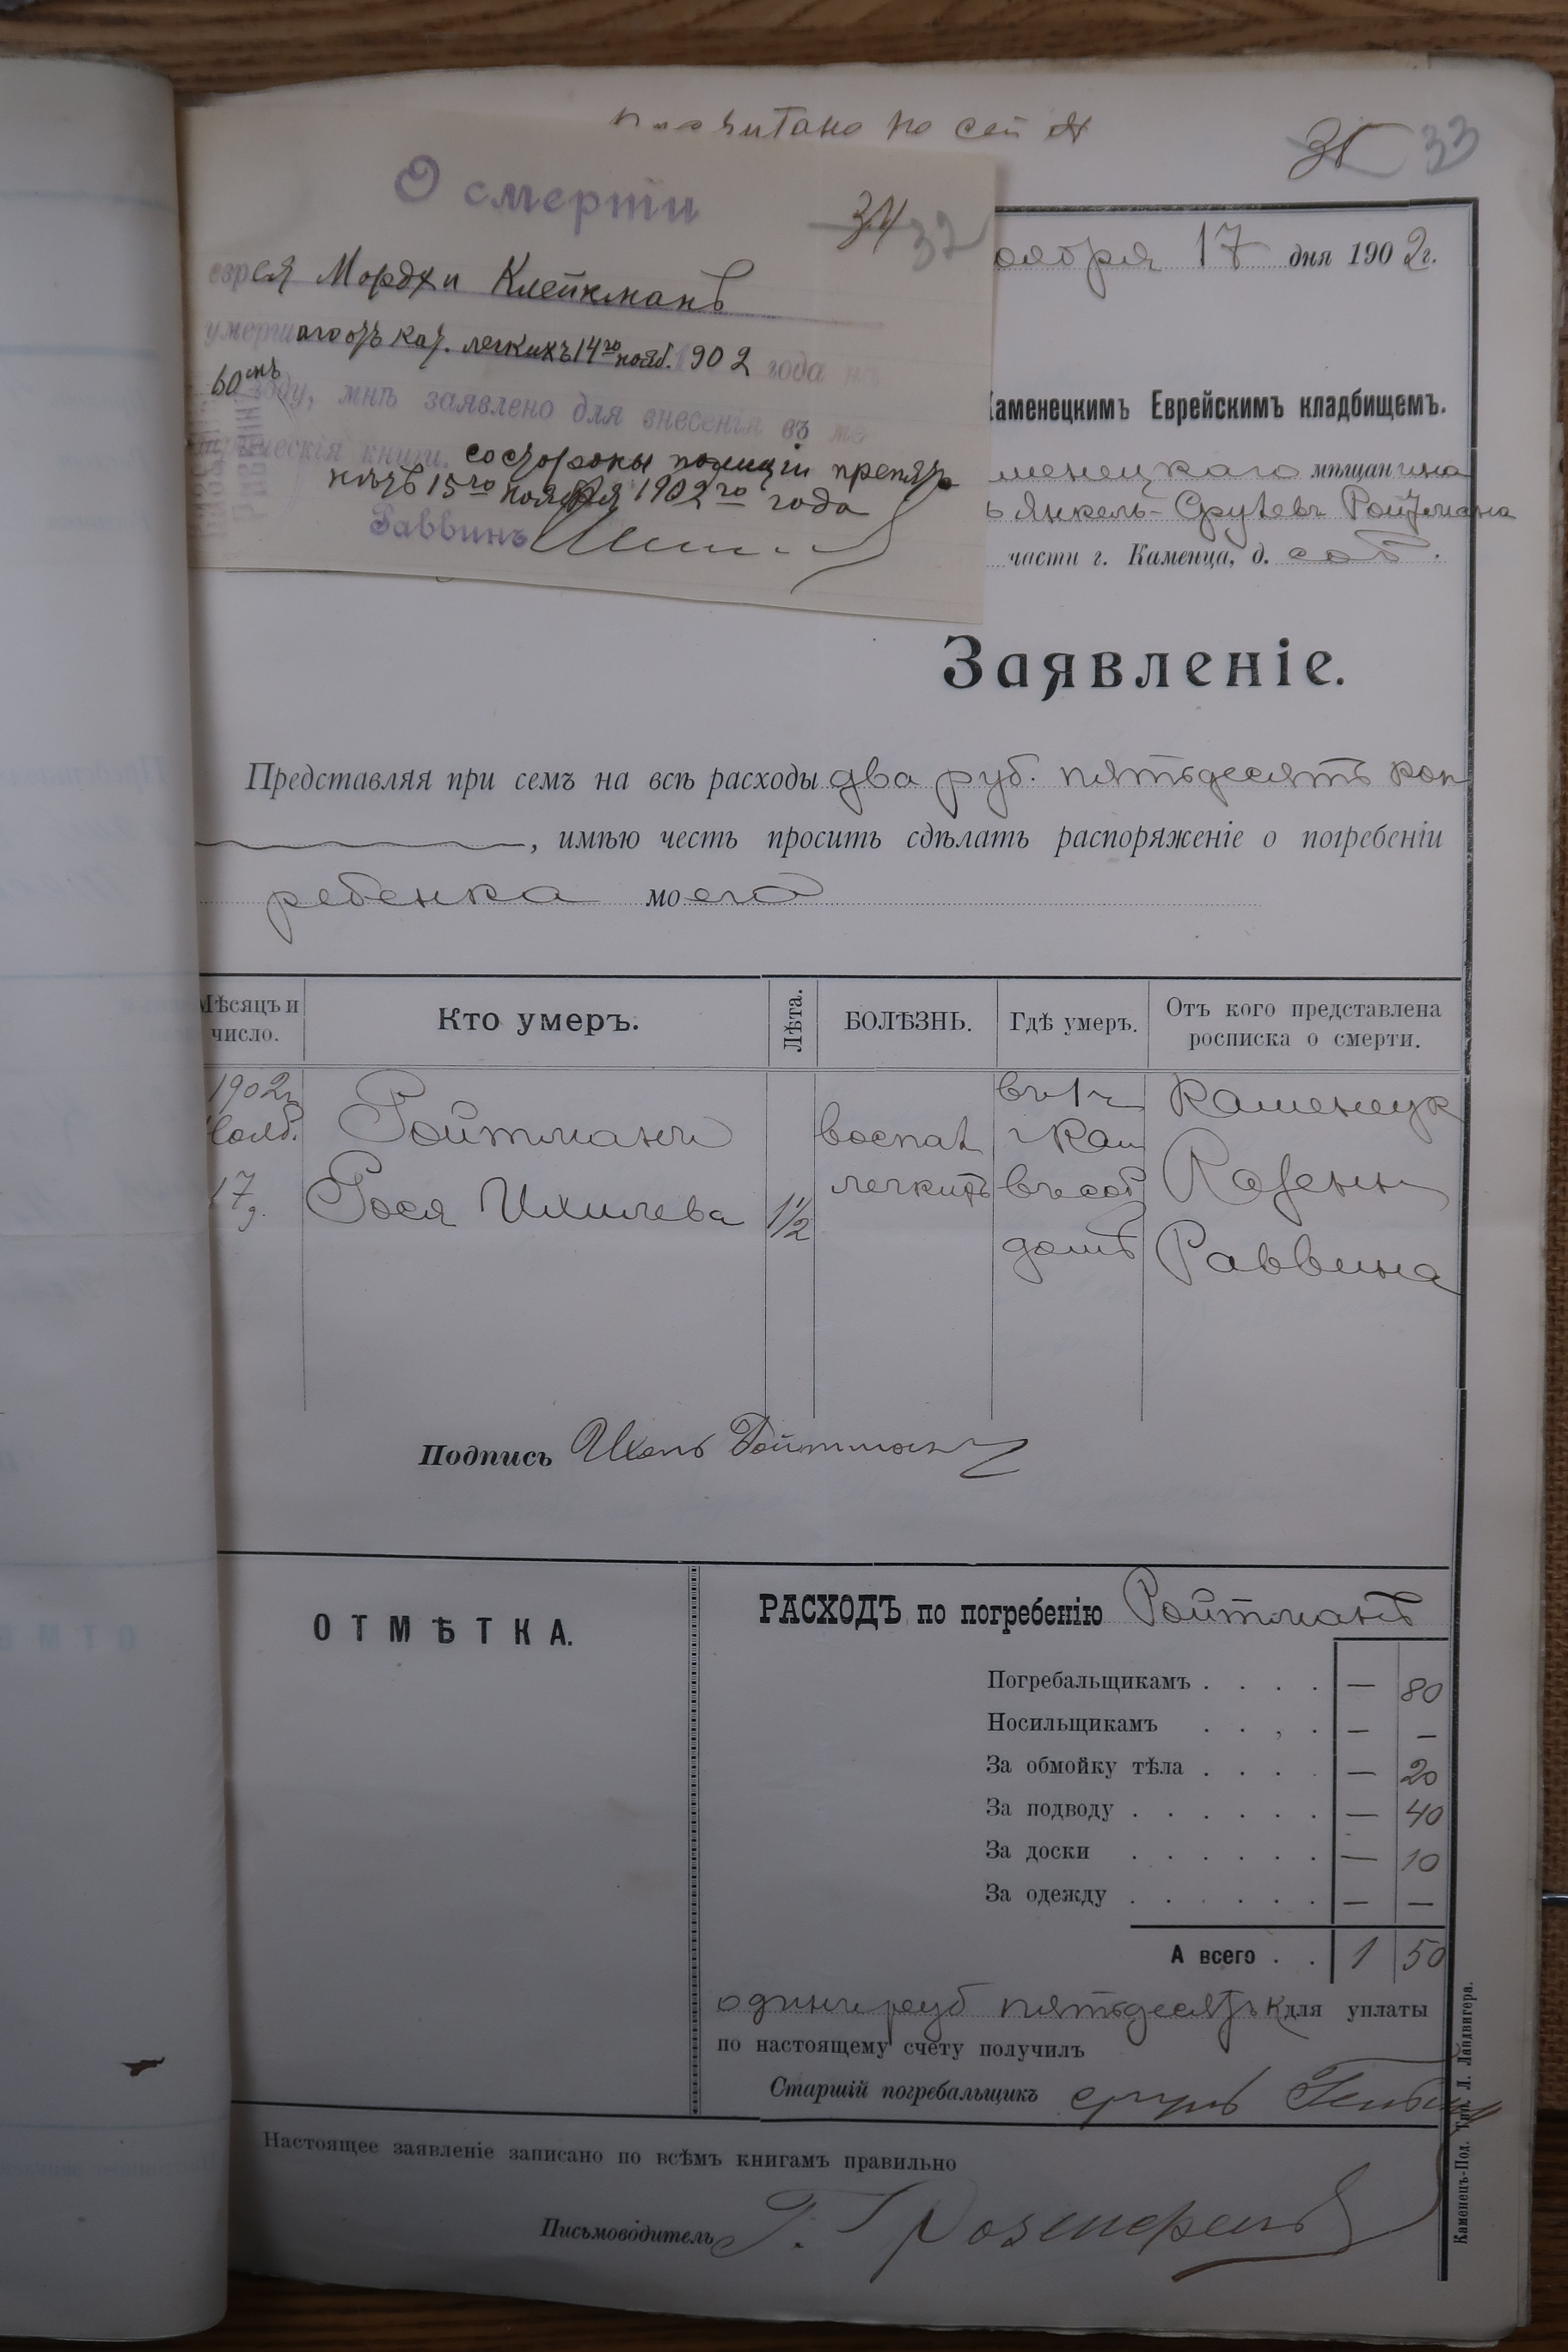 31 33
О смерти
34 32
еврея Мордхи Клейнманъ
умершаго отъ кат. легкихъ 14го нояб. 1902 года на
60 году, мнѣ заявлено для внесенія въ ме
трическія книги. со стороны полиціи препят
15го ноября 1902го года
Раввинъ
оября 17 дня 1902г.
Каменецкимъ Еврейскимъ кладбищемъ.
менецкаго мѣщанина
Янкель-Сруlевъ Ройтмана
части г. Каменца, д. соб.
Заявленіе.
Представляя при семъ на всѣ расходы два руб. пятьдесятъ коп
, имѣю честь просить сдѣлать распоряженіе о погребеніи
ребенка моего
Мѣсяцъ и число. Кто умеръ. Лѣта. БОЛѢЗНЬ. Гдѣ умеръ. Отъ кого представлена росписка о смерти.
1902г въ 1ч Каменецк
Нояб. Ройтманъ воспал г Кам
17 Рося Ихилева 1 1/2 легкихъ въ соб Казенн
домѣ Раввина
Подпись Ихель Ройтманъ
ОТМѢТКА.
РАСХОДЪ по погребенію Ройтманъ
Погребальщикамъ . . . . — 80
Носильщикамъ . . , . — —
За обмойку тѣла . . . . — 20
За подводу . . . . . . — 40
За доски . . . . . . — 10
За одежду . . . . . . — —
А всего . . 1 50
одинъ руб пятьдесятъ к для уплаты
по настоящему счету получилъ
Старшій погребальщикъ
Настоящее заявленіе записано по всѣмъ книгамъ правильно
Письмоводитель Г. Розенфельдъ
Каменецъ-Под. Тип. Л. Ландвигера.